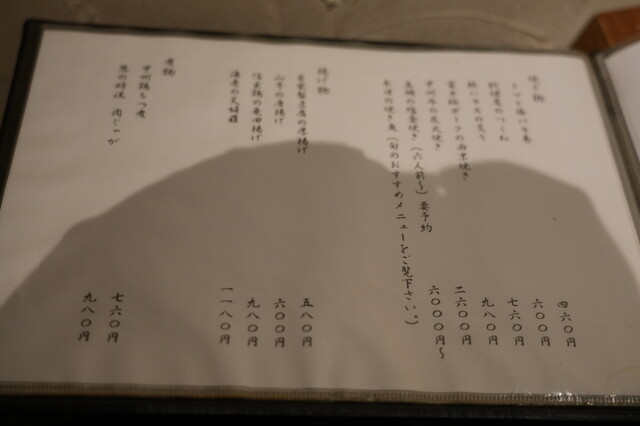 焼き物
トマト豚バラ巻 四六〇円
のつくね 六〇〇円
鮭ハラスの炙り 七六〇円
富士桜ポークの西京焼き 九八〇円
甲州牛の炭火焼き 二六〇〇円
真鯛の塩釜焼き(六人前〜)要予約 六〇〇〇円〜
本日の焼き魚(旬のおすすめメニューをご覧下さい。)
揚げ物
自家製豆腐の厚揚げ 五八〇円
山芋の唐揚げ 六〇〇円
信玄鶏の竜田揚げ 九八〇円
海老の天婦羅 一一八〇円
煮物
甲州鶏もつ煮 七六〇円
肉じゃが 九八〇円